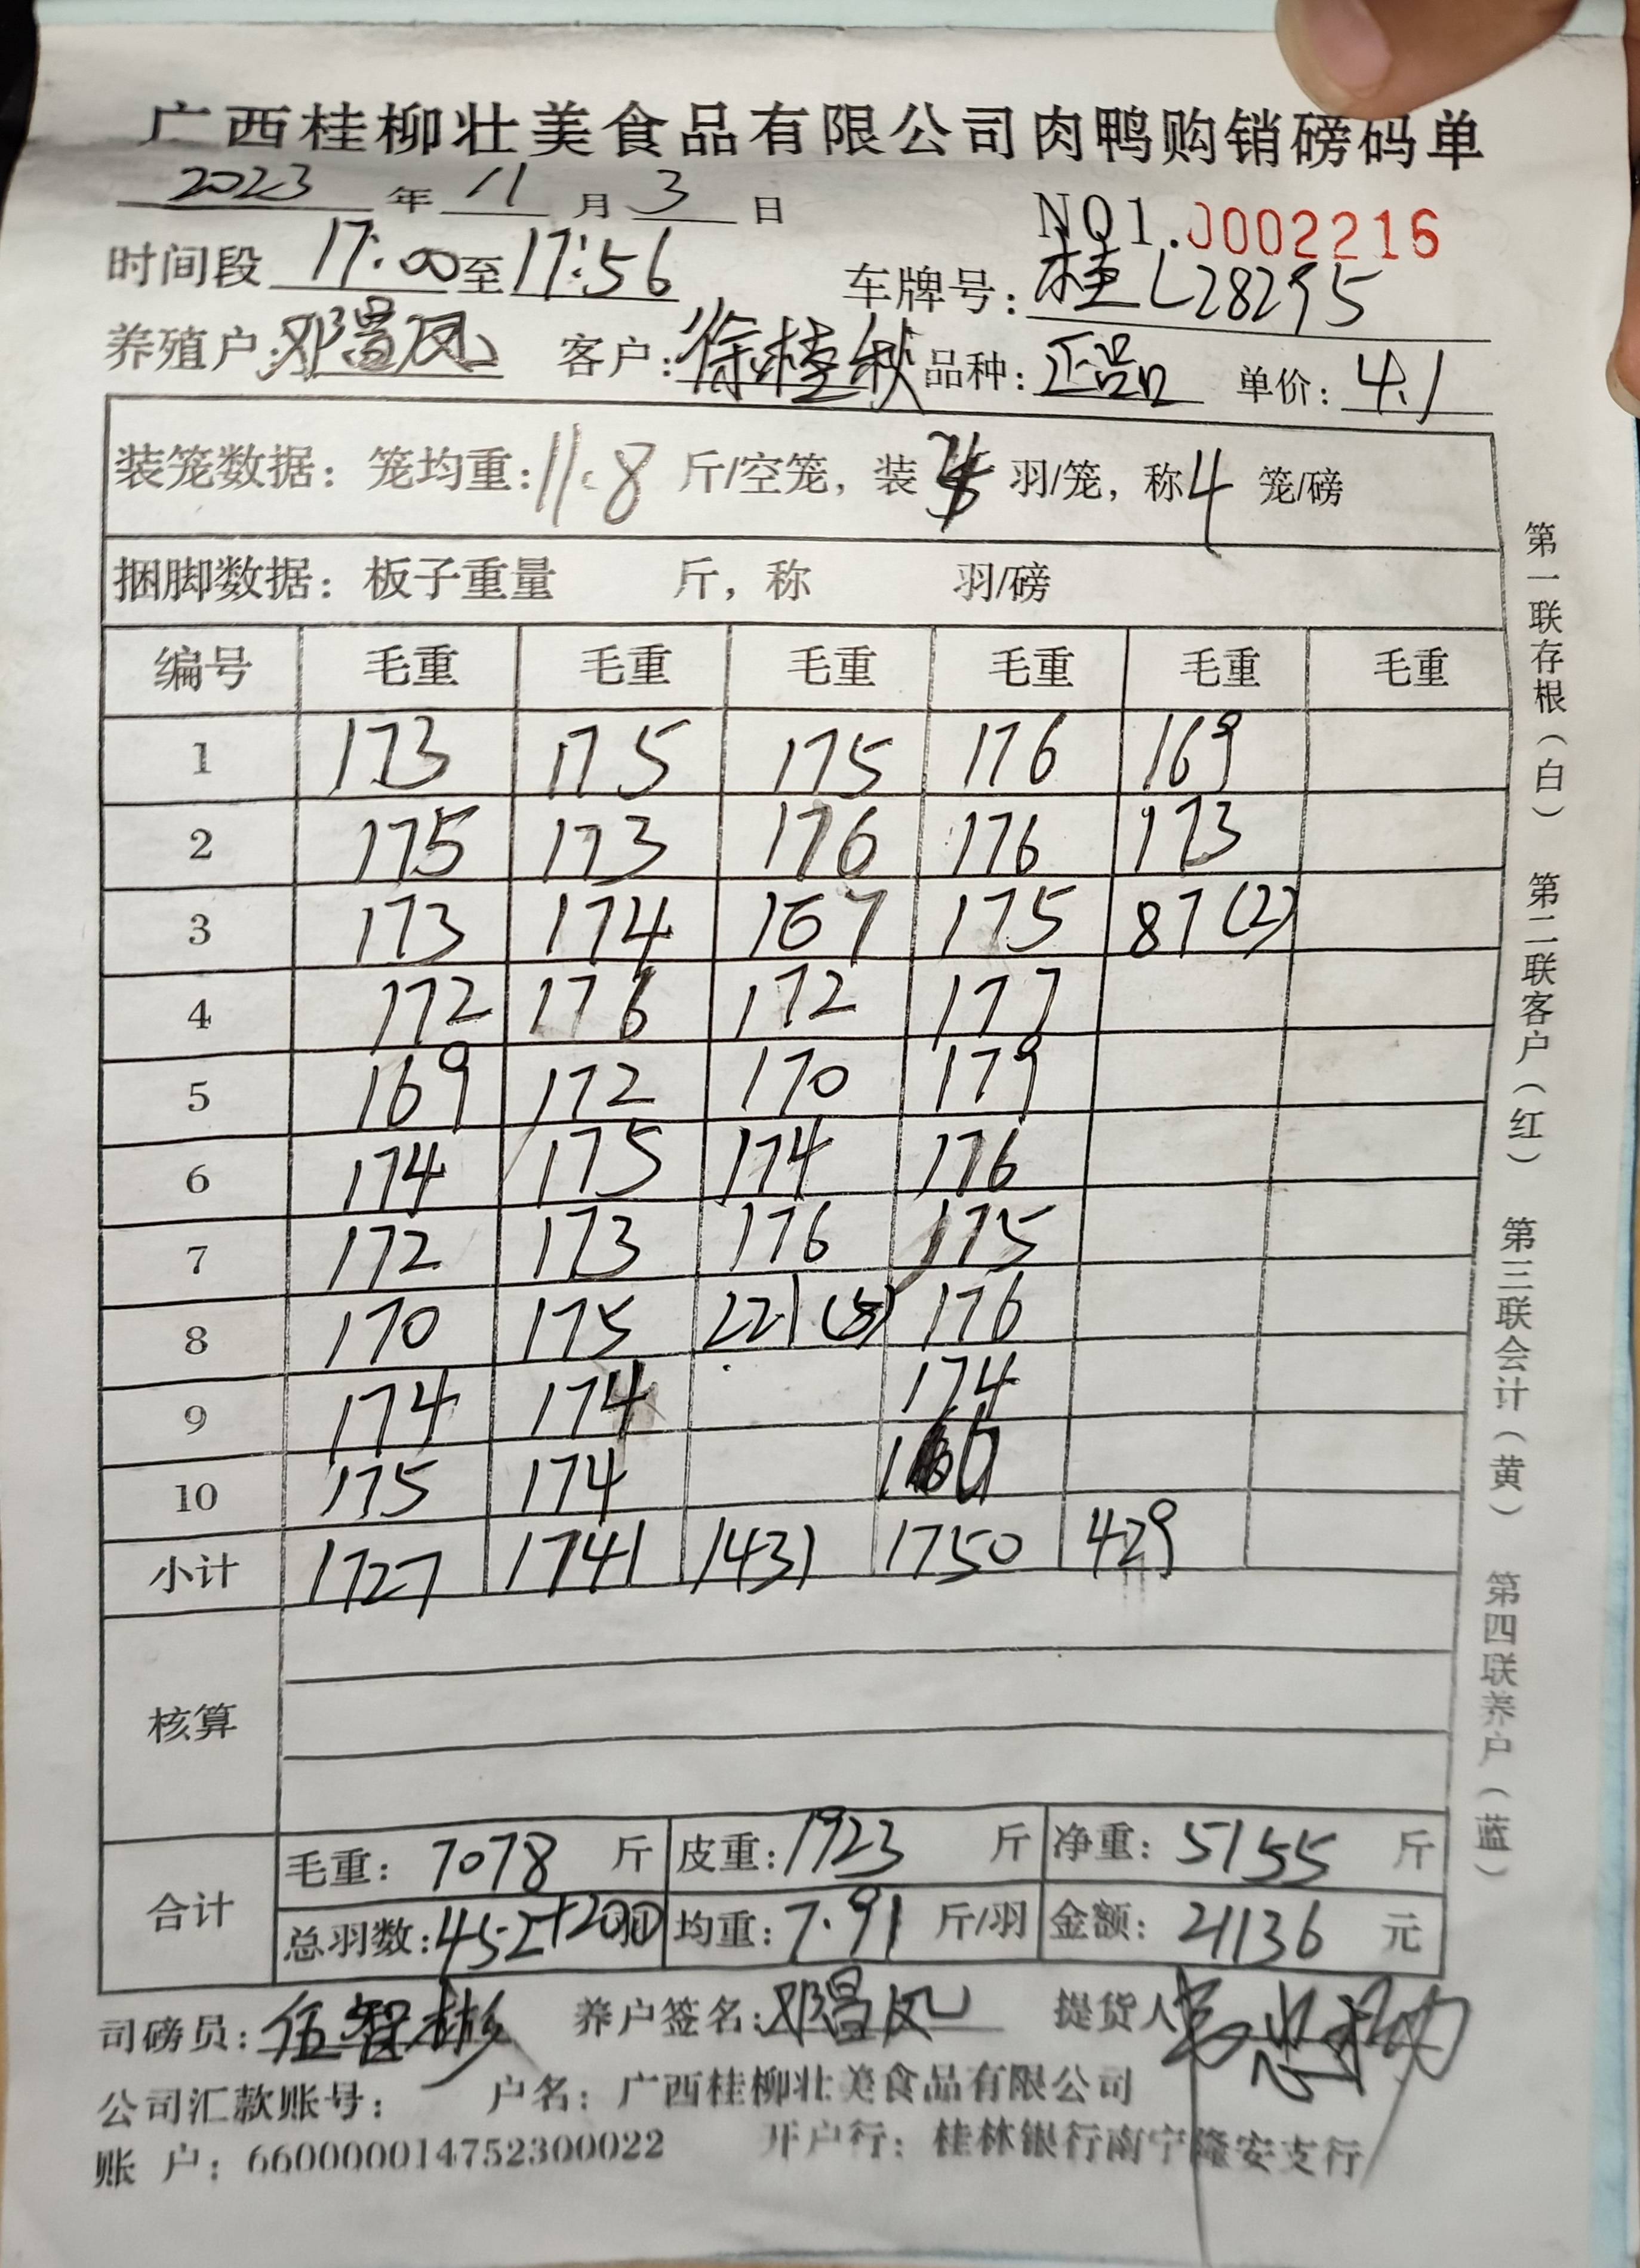 广西桂柳壮美食品有限公司肉鸭购销磅码单
2023年11月3日 NO1.0002216
时间段 17:00至17:56 车牌号:桂L28295
养殖户:邓昌凤 客户:徐桂秋 品种:正品 单价:4.1
装笼数据:笼均重:11.8斤/空笼,装 羽/笼,称4笼/磅
捆脚数据:板子重量 斤,称 羽/磅
编号 毛重 毛重 毛重 毛重 毛重 毛重
1 173 175 175 176 169
2 175 173 176 176 173
3 173 174 167 175 87(2)
4 172 176 172 177
5 169 172 170 179
6 174 175 174 176
7 172 173 176 175
8 170 175 221(5) 176
9 174 174 174
10 175 174
小计 1727 1741 1431 1750 429
核算
合计 毛重:7078斤 皮重:1923斤 净重:5155斤
总羽数:452+200羽 均重:7.91斤/羽 金额:21136元
司磅员:伍智彬 养户签名:邓昌凤 提货人
公司汇款账号: 户名:广西桂柳壮美食品有限公司
账 户:660000014752300022 开户行:桂林银行南宁隆安支行
第一联存根(白) 第二联客户(红) 第三联会计(黄) 第四联养户(蓝)